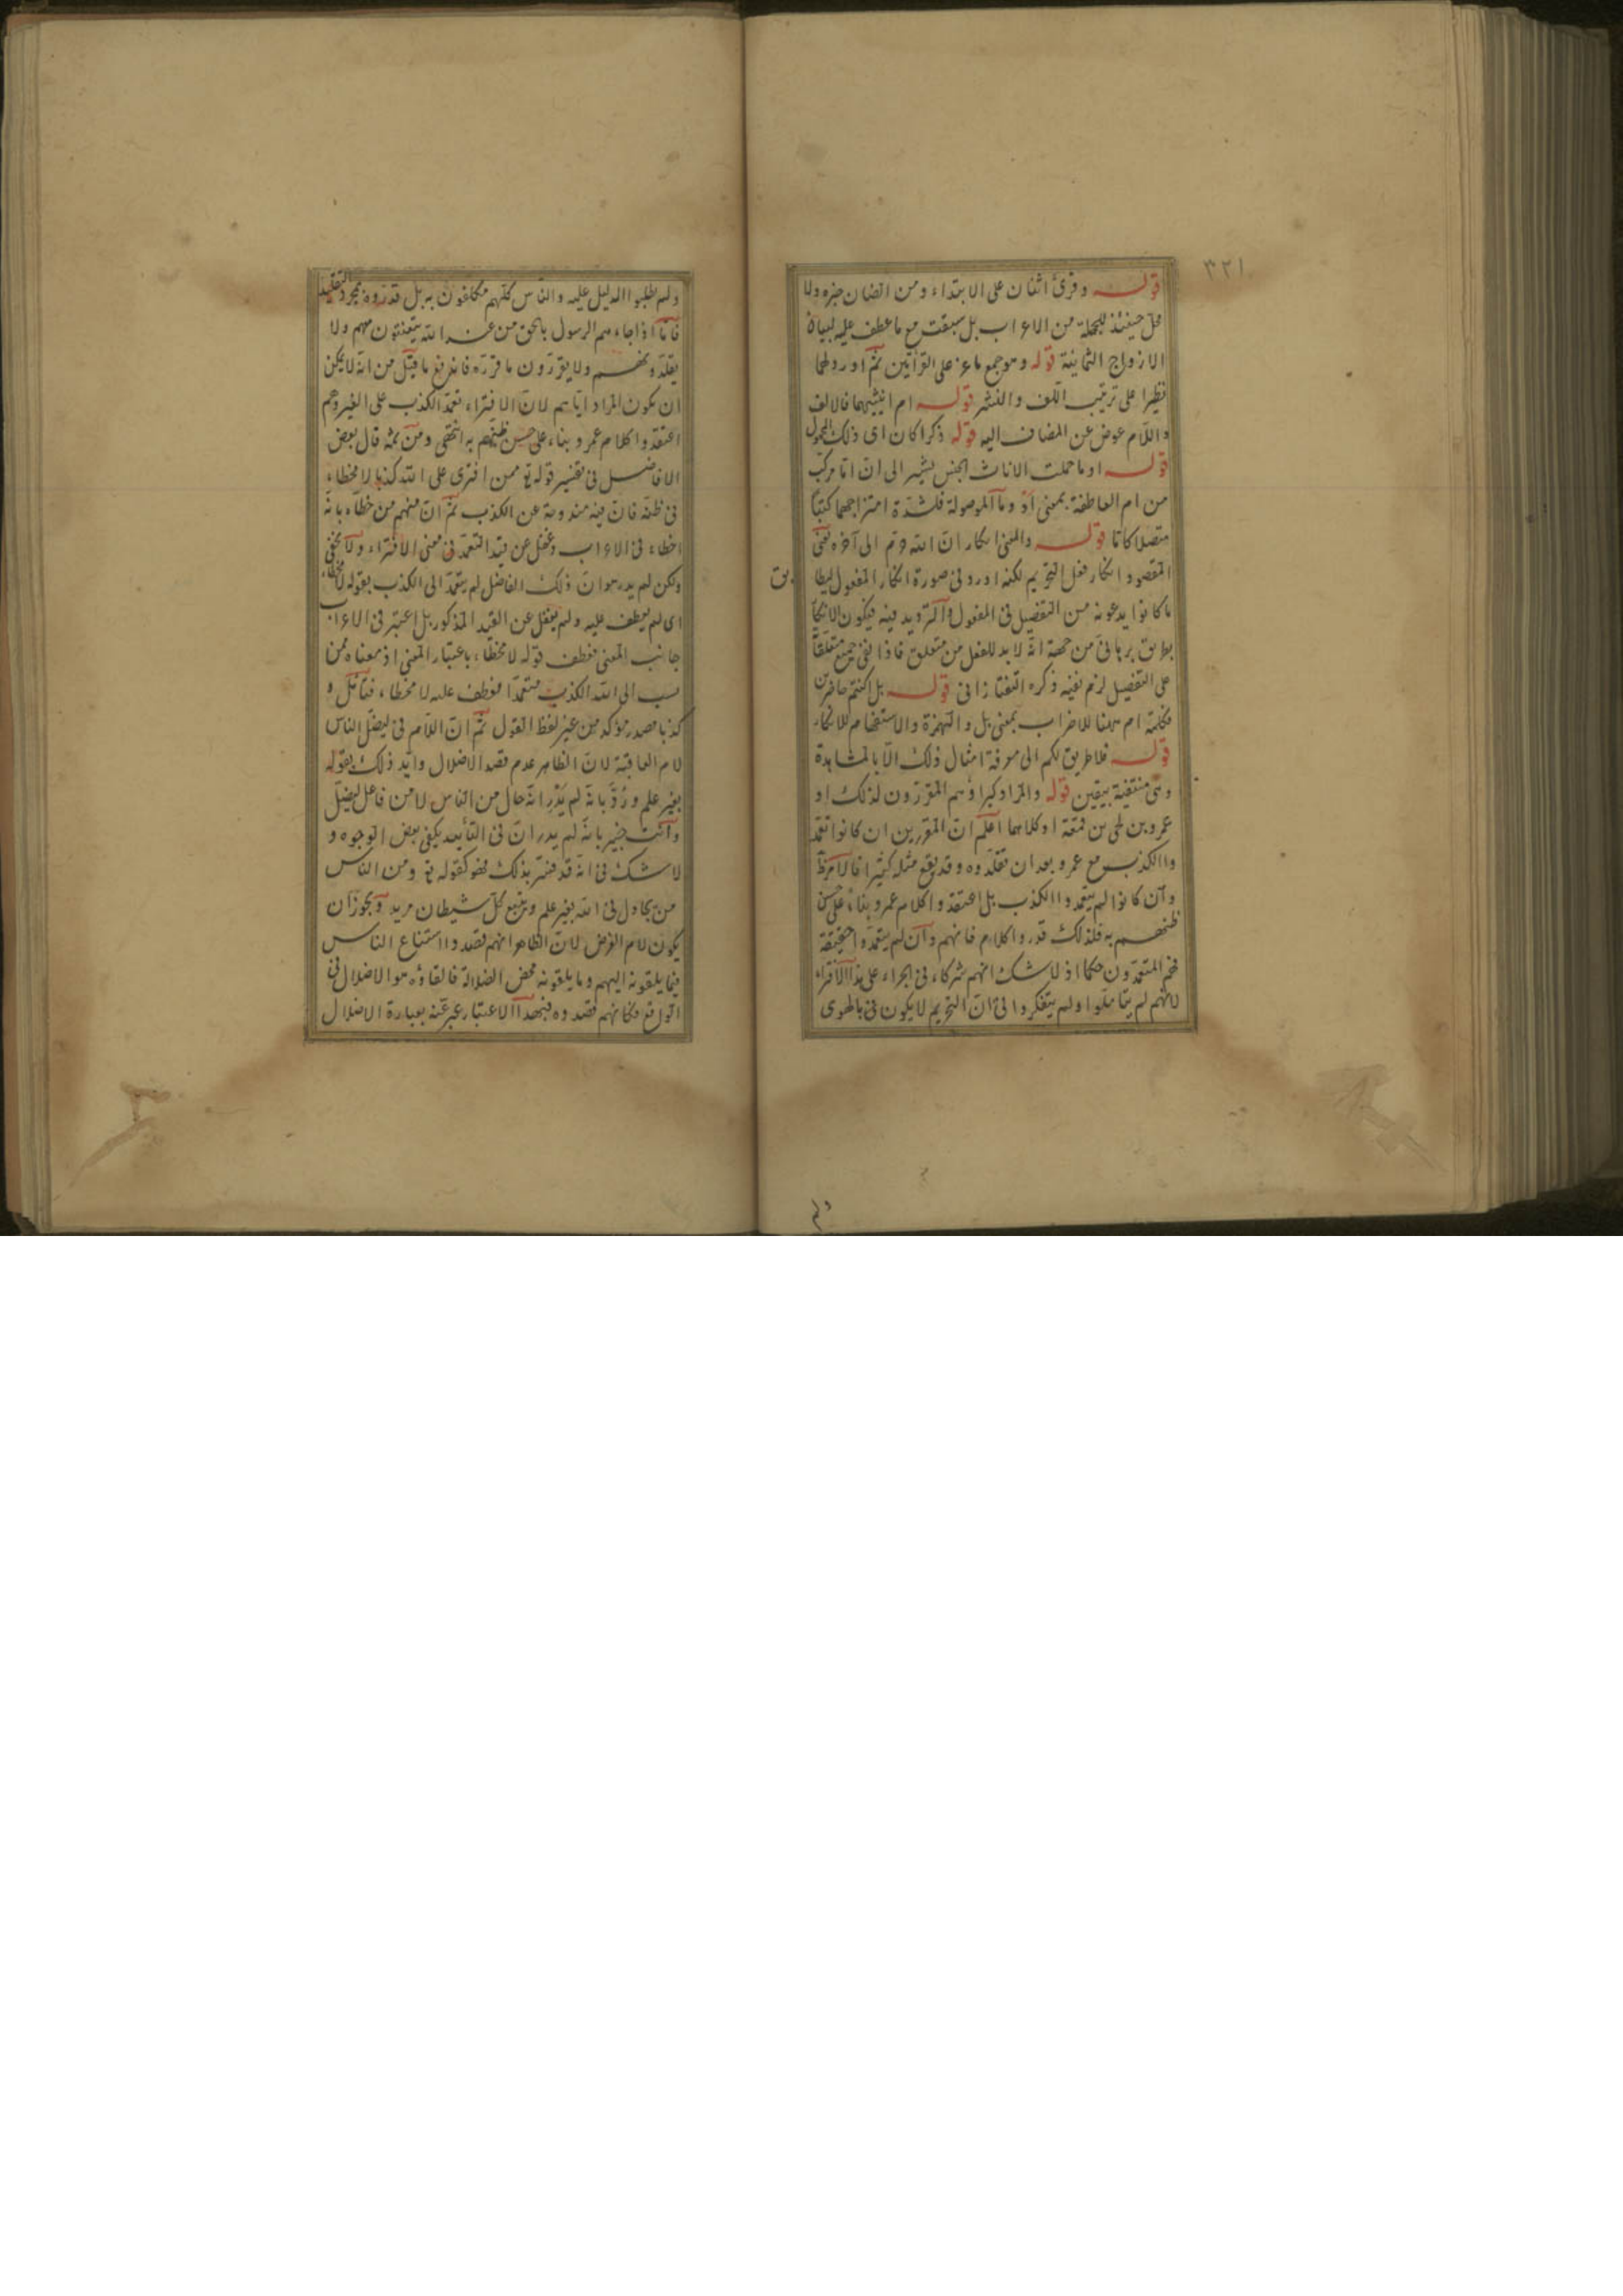 ٣٢١
قوله وقرئ اثنان على الابتداء ومن الضان خبره ولا
محل حينئذ للجملة من الاعراب بل سبقت مع ما عطف عليه لبيان
الازواج الثمانية قوله وهو جمع ماعز على القرائتين ثم اورد لهما
نظيرا على ترتيب اللف والنشر قوله ام انثييهما فالالف
واللام عوض عن المضاف اليه قوله ذكرا كان اى ذلك المحمول
قوله او ما حملت الاناث الجنس يشير الى ان اما مركب
من ام العاطفة بمعنى او وما الموصولة فلشدة امتزاجهما كتبا
متصلا كاتا قوله والمعنى انكار ان الله حرم الى آخره يعنى
المقصود انكار فعل التحريم لكنه اورد فى صورة انكار المفعول ليطا
بق
ما كانوا يدعونه من التفصيل فى المفعول والترديد فيه فيكون الانكار
بطريق برهانى من جهة انه لا بد للفعل من متعلق فاذا نفى جميع متعلقا
على التفصيل لزم نفيه ذكره التفتازانى قوله بل اكنتم حاضرين
فكلمة ام ههنا للاضراب بمعنى بل والهمزة والاستفهام للانكار
قوله فلا طريق لكم الى معرفة امثال ذلك الا بالمشاهدة
وهى منتفية بيقين قوله والمراد كبراؤهم المقررون لذلك او
عمرو بن لحى بن قمعة او كلاهما اعلم ان المقررين ان كانوا تعمد
وا الكذب مع عمرو بعد ان تقلدوه وقد يقع مثله كثيرا فالامر ظ
وان كانوا لم يتعمدوا الكذب بل اعتقدوا كلام عمرو بناء على حسن
ظنهم به فلذلك قدروا كلام فانهم وان لم يتعمدوا حقيقة
فهم المتعمدون حكما اذ لا شك انهم شركاء فى اجراء على هذا الافتراء
لانهم لم يتاملوا ولم يتفكروا فى ان التحريم لا يكون بالهوى
ولم
ولم يطلبوا الدليل عليه والناس كلهم مكلفون به بل قدروه بمجرد التقليد
فاما اذا جاءهم الرسول بالحق من عند الله يتعنتون منهم ولا
يقلدونهم ولا يقررون ما قرره فاندفع ما قيل من انه لا يمكن
ان يكون المراد اياهم لان الافتراء تعمد الكذب على الغير وهم
اعتقدوا كلام عمرو بناء على حسن ظنهم به انتهى ومن ثمه قال بعض
الافاضل فى تفسير قوله تع ممن افترى على الله كذبا لا مخطاء
فى ظنه فان فيه مندوحة عن الكذب ثم ان منهم من خطاه بانه
اخطاء فى الاعراب وغفل عن قيد التعمد فى معنى الافتراء ولا يخفى
ولكن لم يدر هو ان ذلك الفاضل لم يتعمد الى الكذب بقوله لا مخطاء
اى لم يعطف عليه ولم يغفل عن القيد المذكور بل اعتبر فى الاعراب
جانب المعنى فعطف قوله لا مخطاء باعتبار المعنى اذ معناه ممن
نسب الى الله الكذب متعمدا فعطف عليه لا مخطاء فتأمل و
كذبا مصدر مؤكد من غير لفظ القول ثم ان اللام فى ليضل الناس
لام العاقبة لان الظاهر عدم قصد الاضلال وايد ذلك بقوله
بغير علم ورد بانه لم يدر انه حال من الناس لا من فاعل ليضل
وانت خبير بانه لم يدر ان فى التأييد يكفى بعض الوجوه و
لا شك فى انه قد فسر بذلك فهو كقوله تع ومن الناس
من يجادل فى الله بغير علم ويتبع كل شيطان مريد ويجوز ان
يكون لام الغرض لان الظاهر انهم قصدوا استتباع الناس
فيما يلقونه اليهم وما يلقونه محض الضلالة فالقاؤه هو الاضلال فى
الواقع فكانهم قصدوه فبهذا الاعتبار عبر عنه بعبارة الاضلال